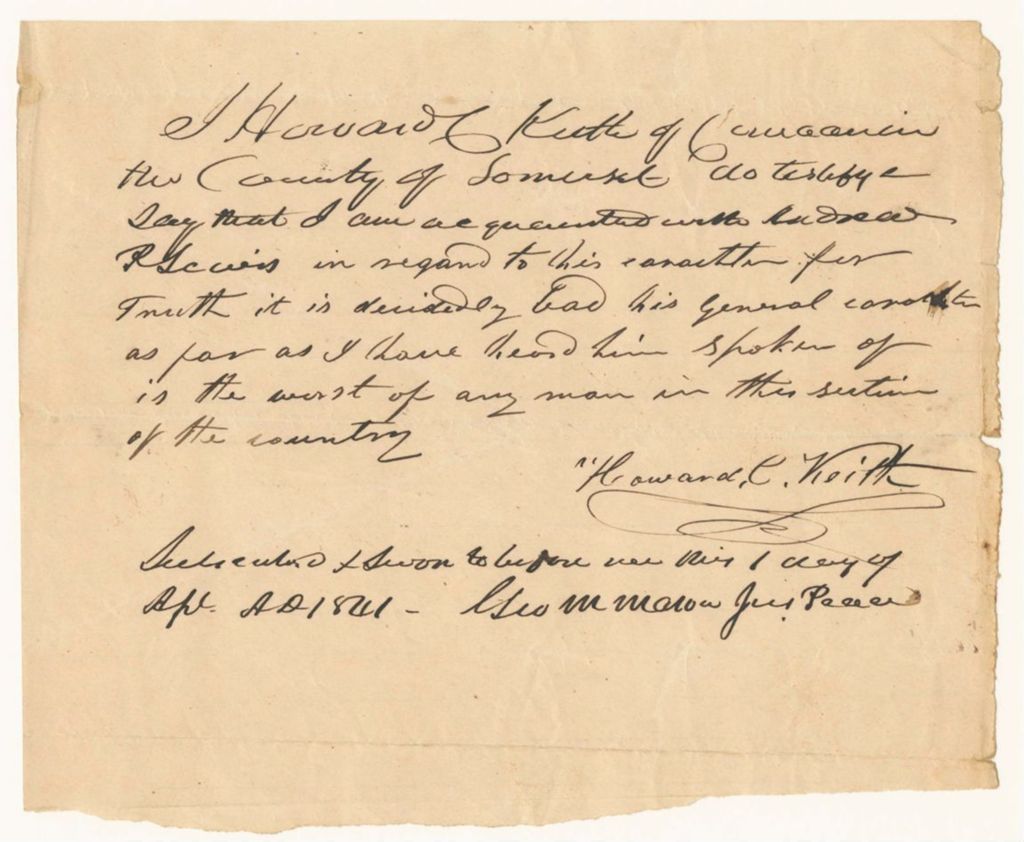 I Howard C Keith of Canaan in
the County of Somerset do testify &
Say that I am acquainted with Andrew
P Lewis in regard to his caracter for
Truth it is decidedly bad his general caracter
as far as I have heard him spoken of
is the worst of any man in this section
of the country
Howard, C. Keith
Subscribed & Sworn to before me this 1 day of
Apl. AD 1841 - Geo M Mason Jus Peace